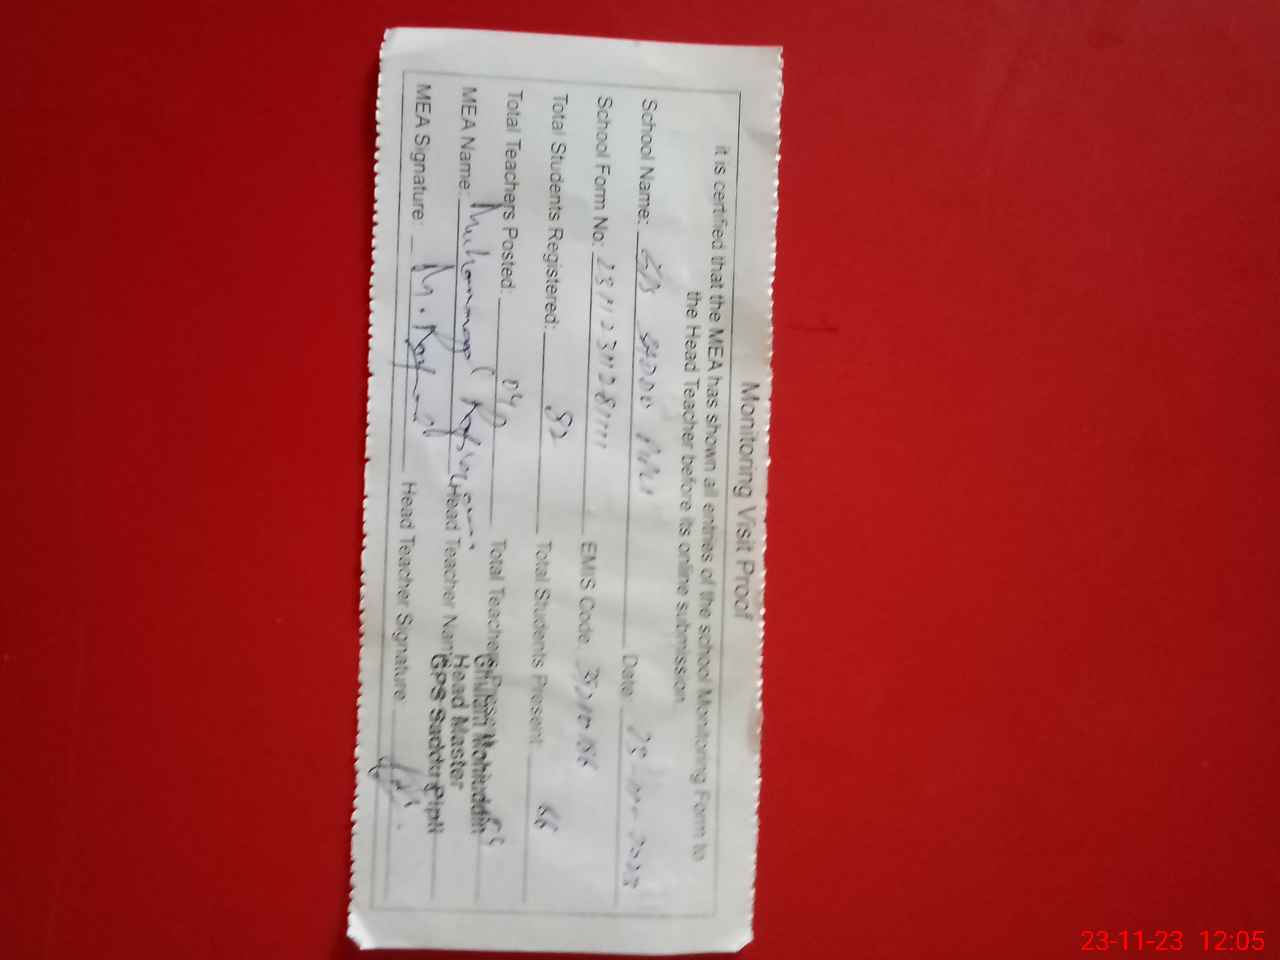 Monitoring Visit Proof
it is certified that the MEA has shown all entries of the school Monitoring Form to
the Head Teacher before its online submission
School Name: Date:
School Form No: EMIS Code.
Total Students Registered: 82 Total Students Present: 66
Total Teachers Posted: 04 Total Teachers Present
Ghulam Mohiuddin
MEA Name: Muhammad Head Teacher Name
Head Master
GPS Saddu Pipli
MEA Signature: Head Teacher Signature
23-11-23 12:05